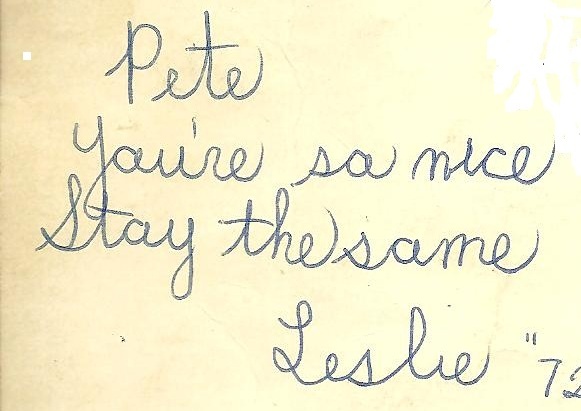 Pete
You're so nice
Stay the same
Leslie "72